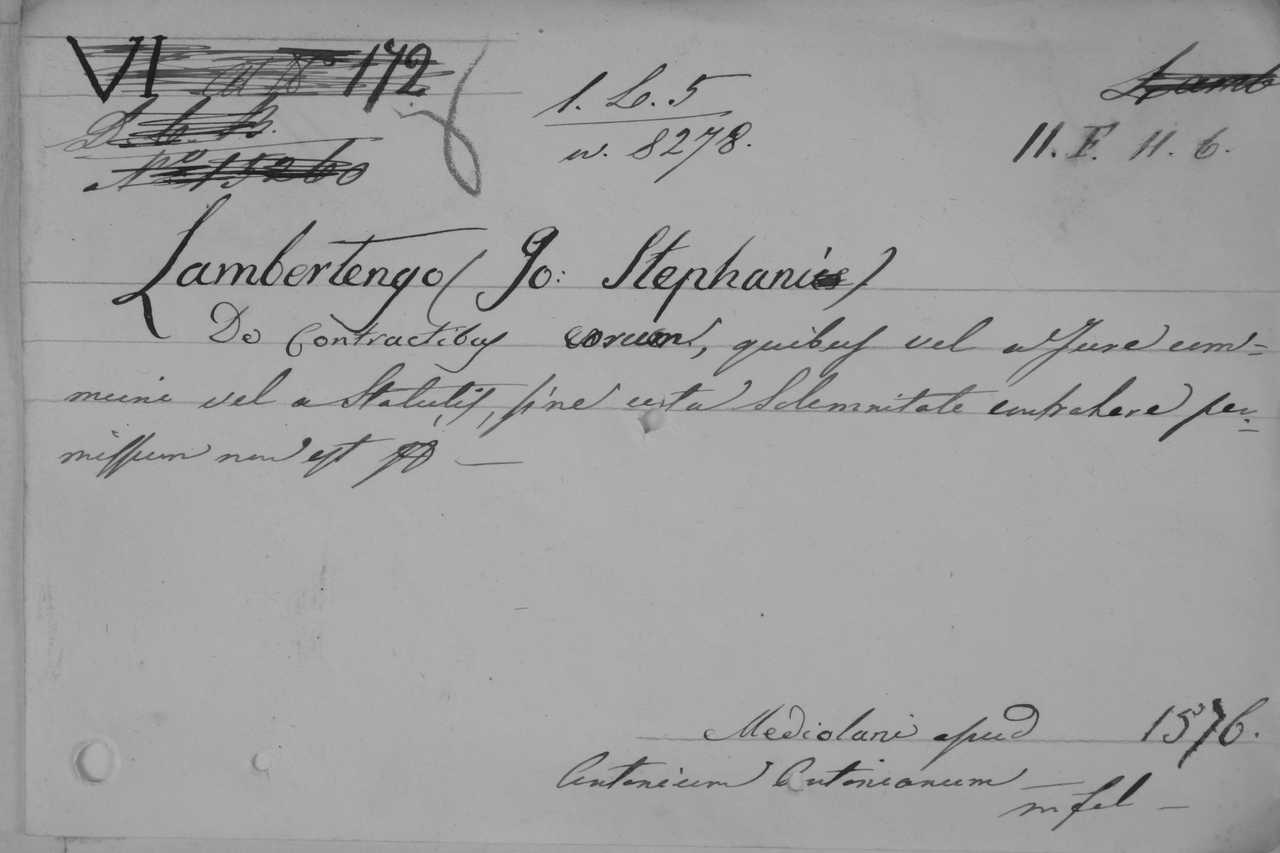 VI 172
1. L. 5
n. 8278.
Lamb
11. F. 11. b.
D. b. B.
No 15260
Lambertengo (Jo: Stephani)
De Contractibus eorum, quibus vel a Jure com=
muni vel a Statutis, sine certa Solemnitate contrahere per=
missum non est
Mediolani apud 1576.
Antonium Antonianum
in fol